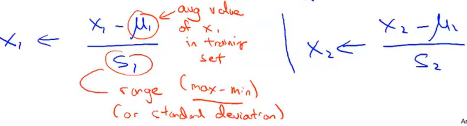 x₁ ← (x₁ - μ₁) / S₁
avg value
of x₁
in training
set
range (max-min)
(or standard deviation)
x₂ ← (x₂ - μ₂) / S₂